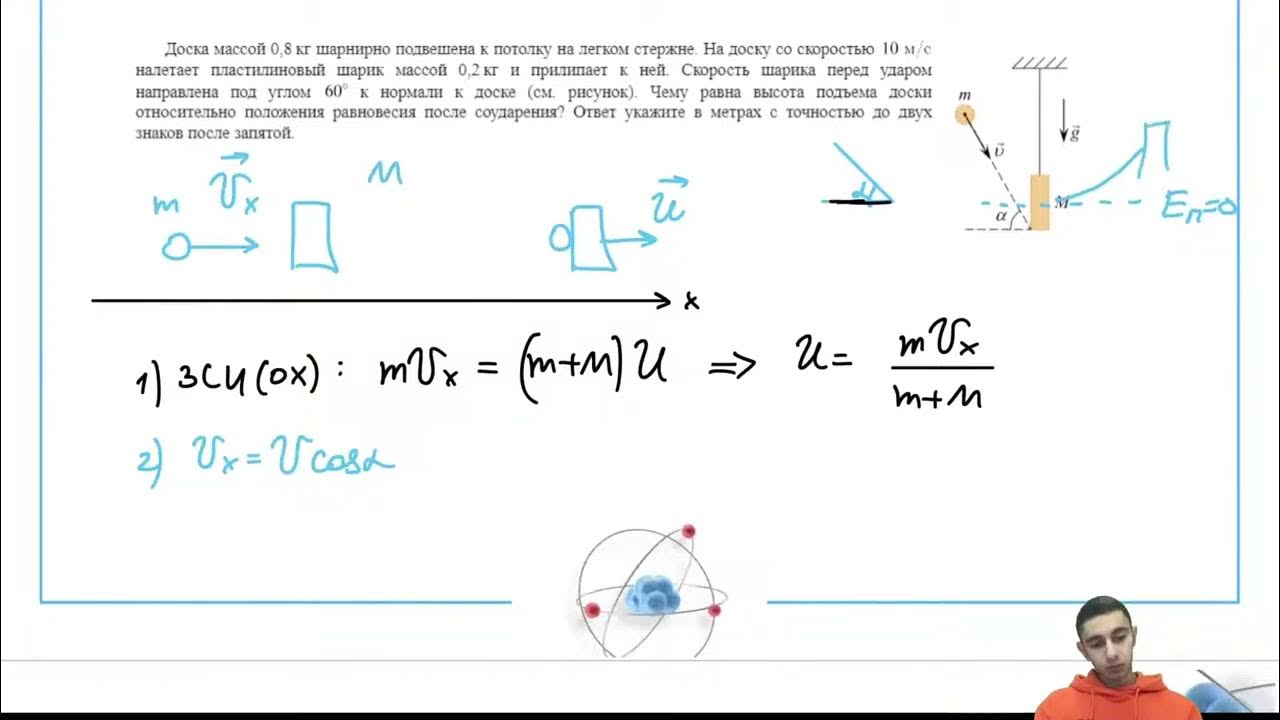 Доска массой 0,8 кг шарнирно подвешена к потолку на легком стержне. На доску со скоростью 10 м/с
налетает пластилиновый шарик массой 0,2 кг и прилипает к ней. Скорость шарика перед ударом
направлена под углом 60° к нормали к доске (см. рисунок). Чему равна высота подъема доски
относительно положения равновесия после соударения? Ответ укажите в метрах с точностью до двух
знаков после запятой.
m
g
v
M
α
α
Eп=0
m
Vx
M
u
x
1) ЗСИ(OX): mVx = (m+M)U => U = mVx / m+M
2) Vx = V cosα